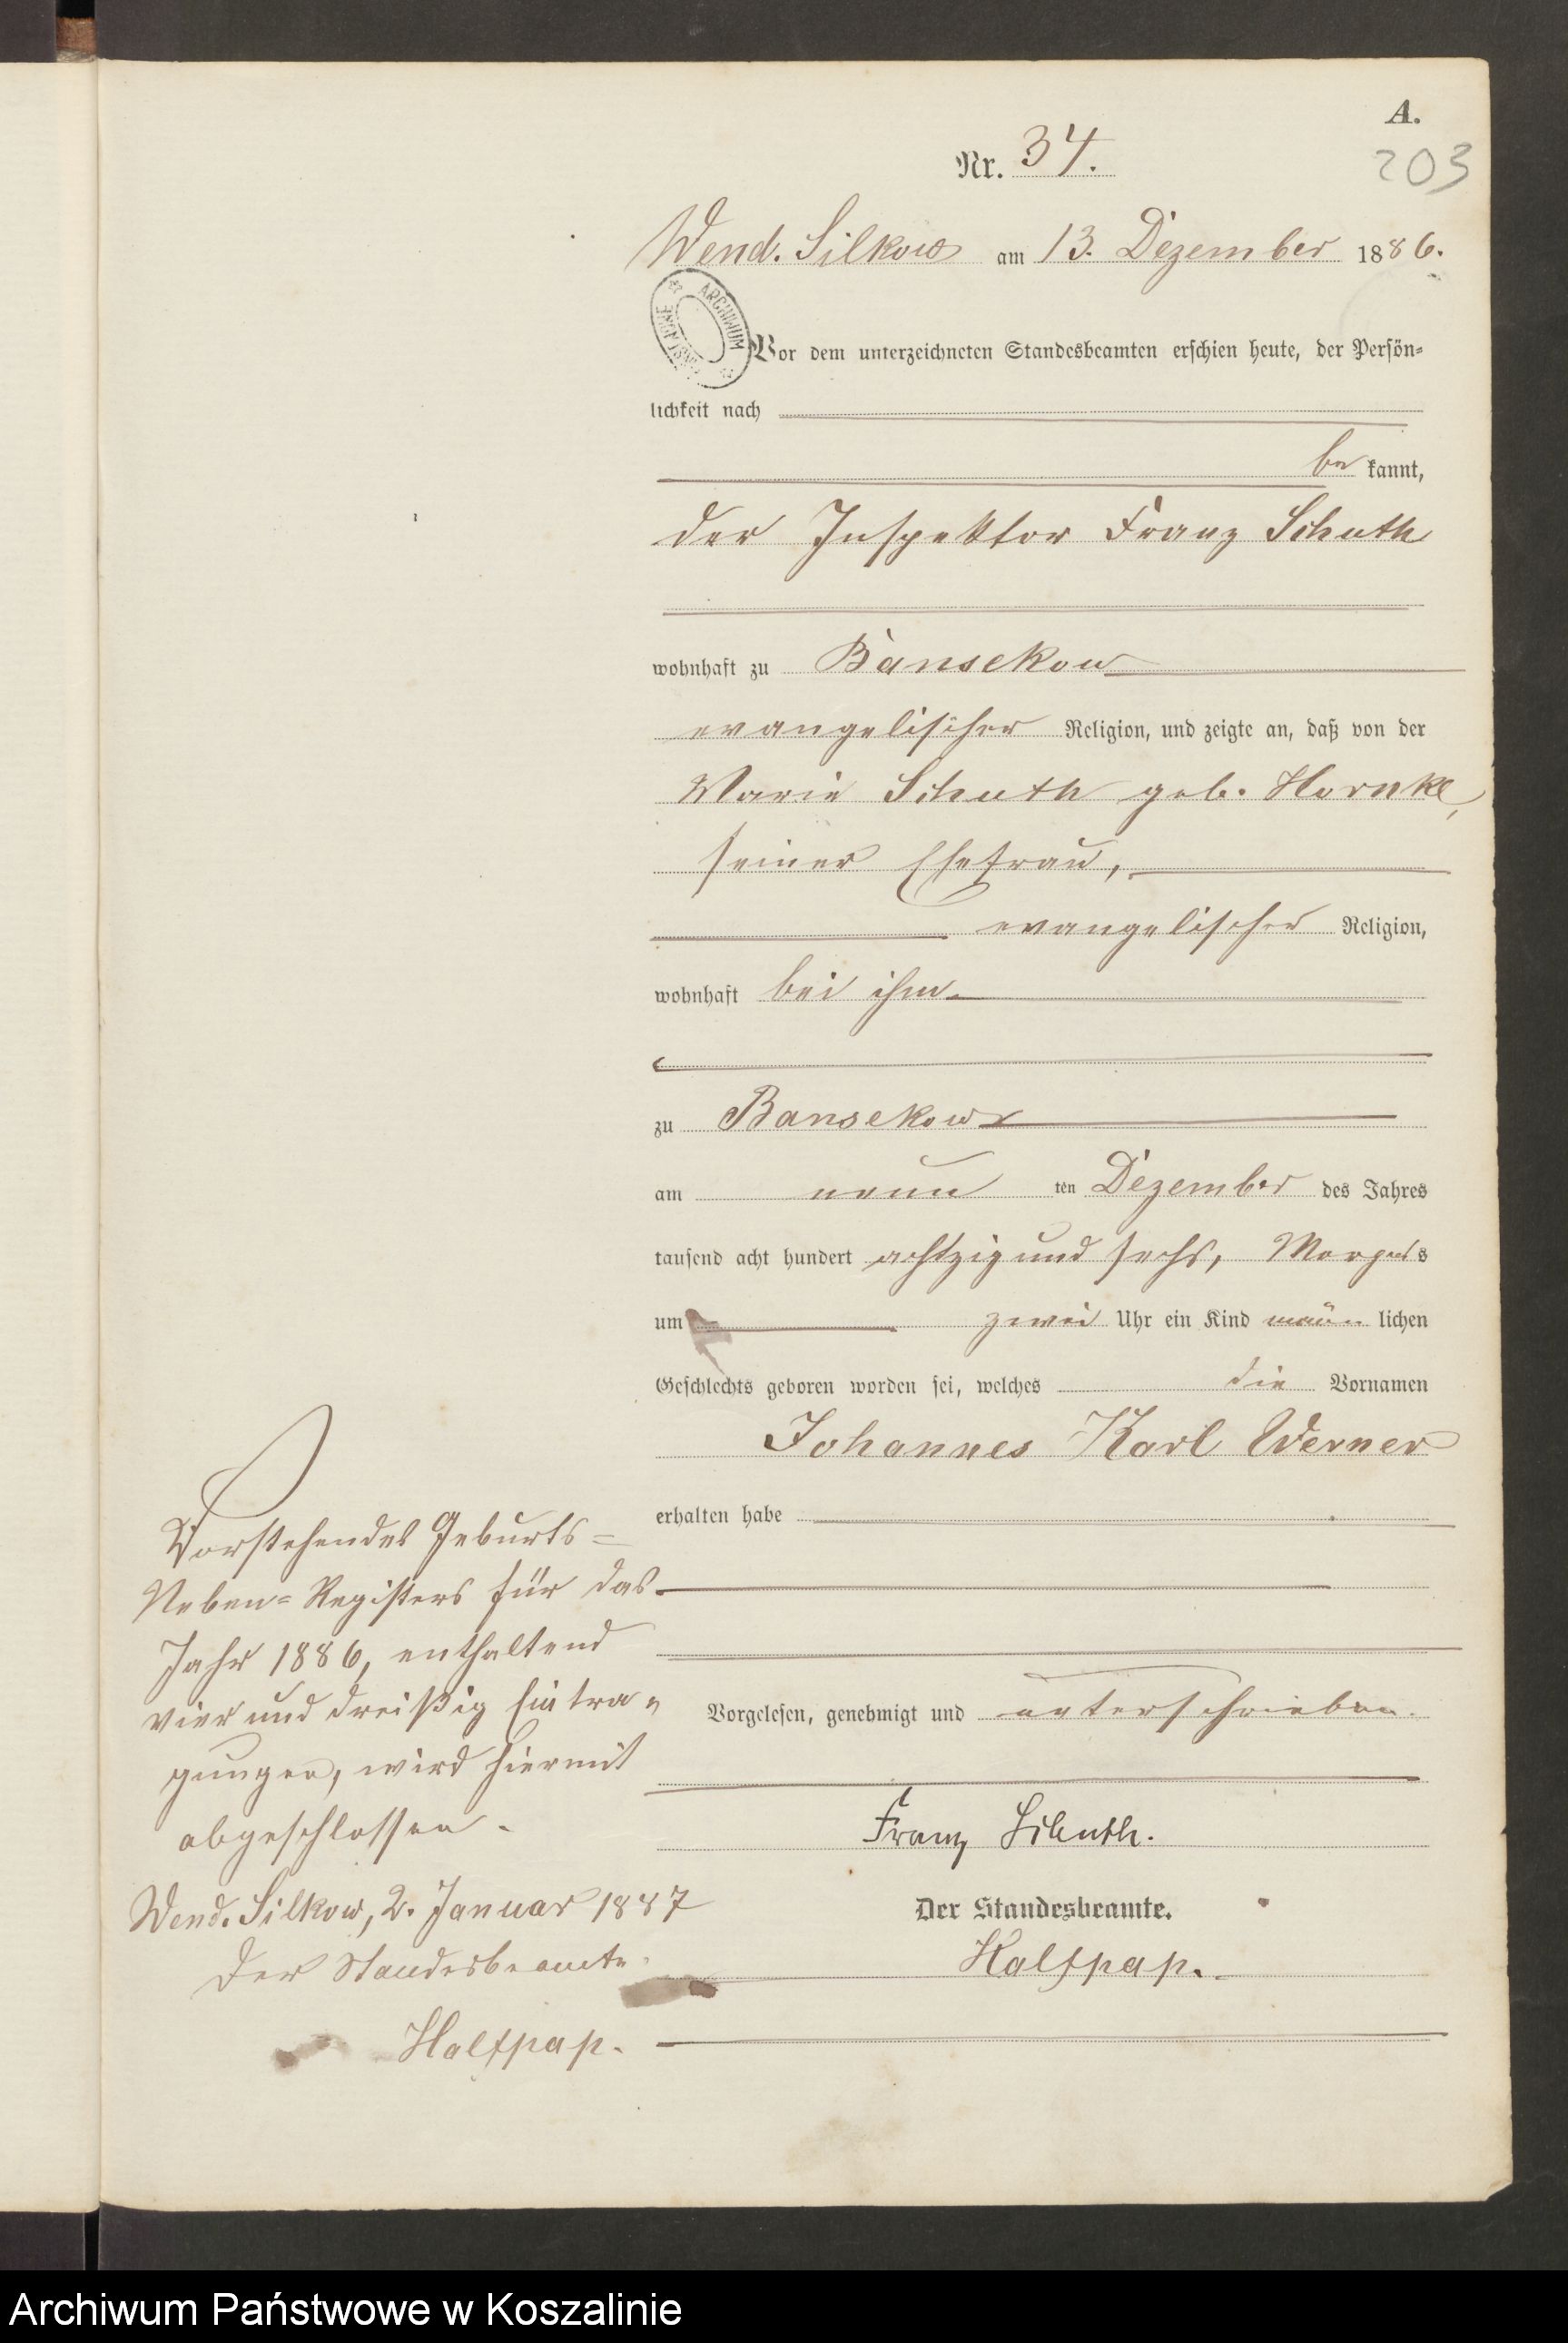 A.
203
Nr. 34.
Wend. Silkow am 13. Dezember 1886.
ARCHIWUM
Vor dem unterzeichneten Standesbeamten erschien heute, der Persön-
lichkeit nach
be kannt,
der Inspektor Franz Schuth
wohnhaft zu Bansekow
evangelischer Religion, und zeigte an, daß von der
Marie Schuth geb. Hornke,
seiner Ehefrau,
evangelischer Religion,
wohnhaft bei ihm
zu Bansekow
am neun ten Dezember des Jahres
tausend acht hundert achtzig und sechs, Morgens
um zwei Uhr ein Kind männ lichen
Geschlechts geboren worden sei, welches die Vornamen
Johannes Karl Werner
erhalten habe
Vorgelesen, genehmigt und unterschrieben.
Franz Schuth.
Der Standesbeamte.
Halfpap.
Vorstehendes Geburts-
Neben-Registers für das
Jahr 1886, enthaltend
vier und dreißig Eintra-
gungen, wird hiermit
abgeschlossen.
Wend. Silkow, 2. Januar 1887
Der Standesbeamte.
Halfpap.
Archiwum Państwowe w Koszalinie